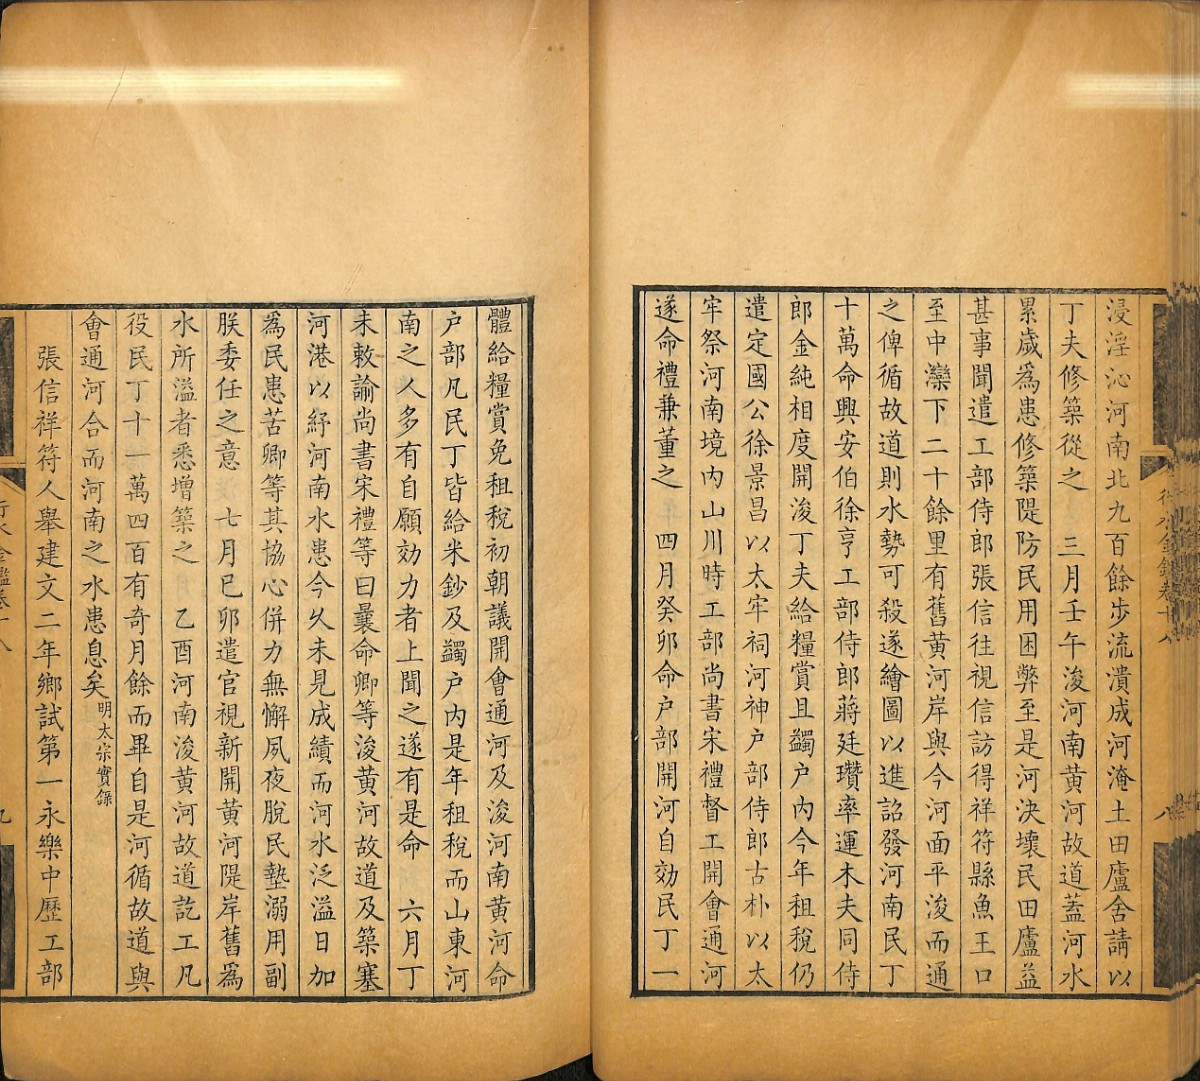 浸淫沁河南北九百餘步流潰成河淹土田廬舍請以
丁夫修築從之　三月壬午浚河南黃河故道蓋河水
累歲為患修築隄防民用困弊至是河決壞民田廬益
甚事聞遣工部侍郎張信往視信訪得祥符縣魚王口
至中灤下二十餘里有舊黃河岸與今河面平浚而通
之俾循故道則水勢可殺遂繪圖以進詔發河南民丁
十萬命興安伯徐亨工部侍郎蔣廷瓚率運木夫同侍
郎金純相度開浚丁夫給糧賞且蠲户內今年租稅仍
遣定國公徐景昌以太牢祠河神户部侍郎古朴以太
牢祭河南境內山川時工部尚書宋禮督工開會通河
遂命禮兼董之　四月癸卯命户部開河自効民丁一
體給糧賞免租稅初朝議開會通河及浚河南黃河命
户部凡民丁皆給米鈔及蠲户內是年租稅而山東河
南之人多有自願効力者上聞之遂有是命　六月丁
未敕諭尚書宋禮等曰曩命卿等浚黃河故道及築塞
河港以紓河南水患今久未見成績而河水泛溢日加
為民患苦卿等其協心併力無懈夙夜脫民墊溺用副
朕委任之意　七月己卯遣官視新開黃河隄岸舊為
水所溢者悉增築之　乙酉河南浚黃河故道訖工凡
役民丁十一萬四百有奇月餘而畢自是河循故道與
會通河合而河南之水患息矣明太宗實錄
張信祥符人舉建文二年鄉試第一永樂中歷工部
行水金鑑卷十八
九